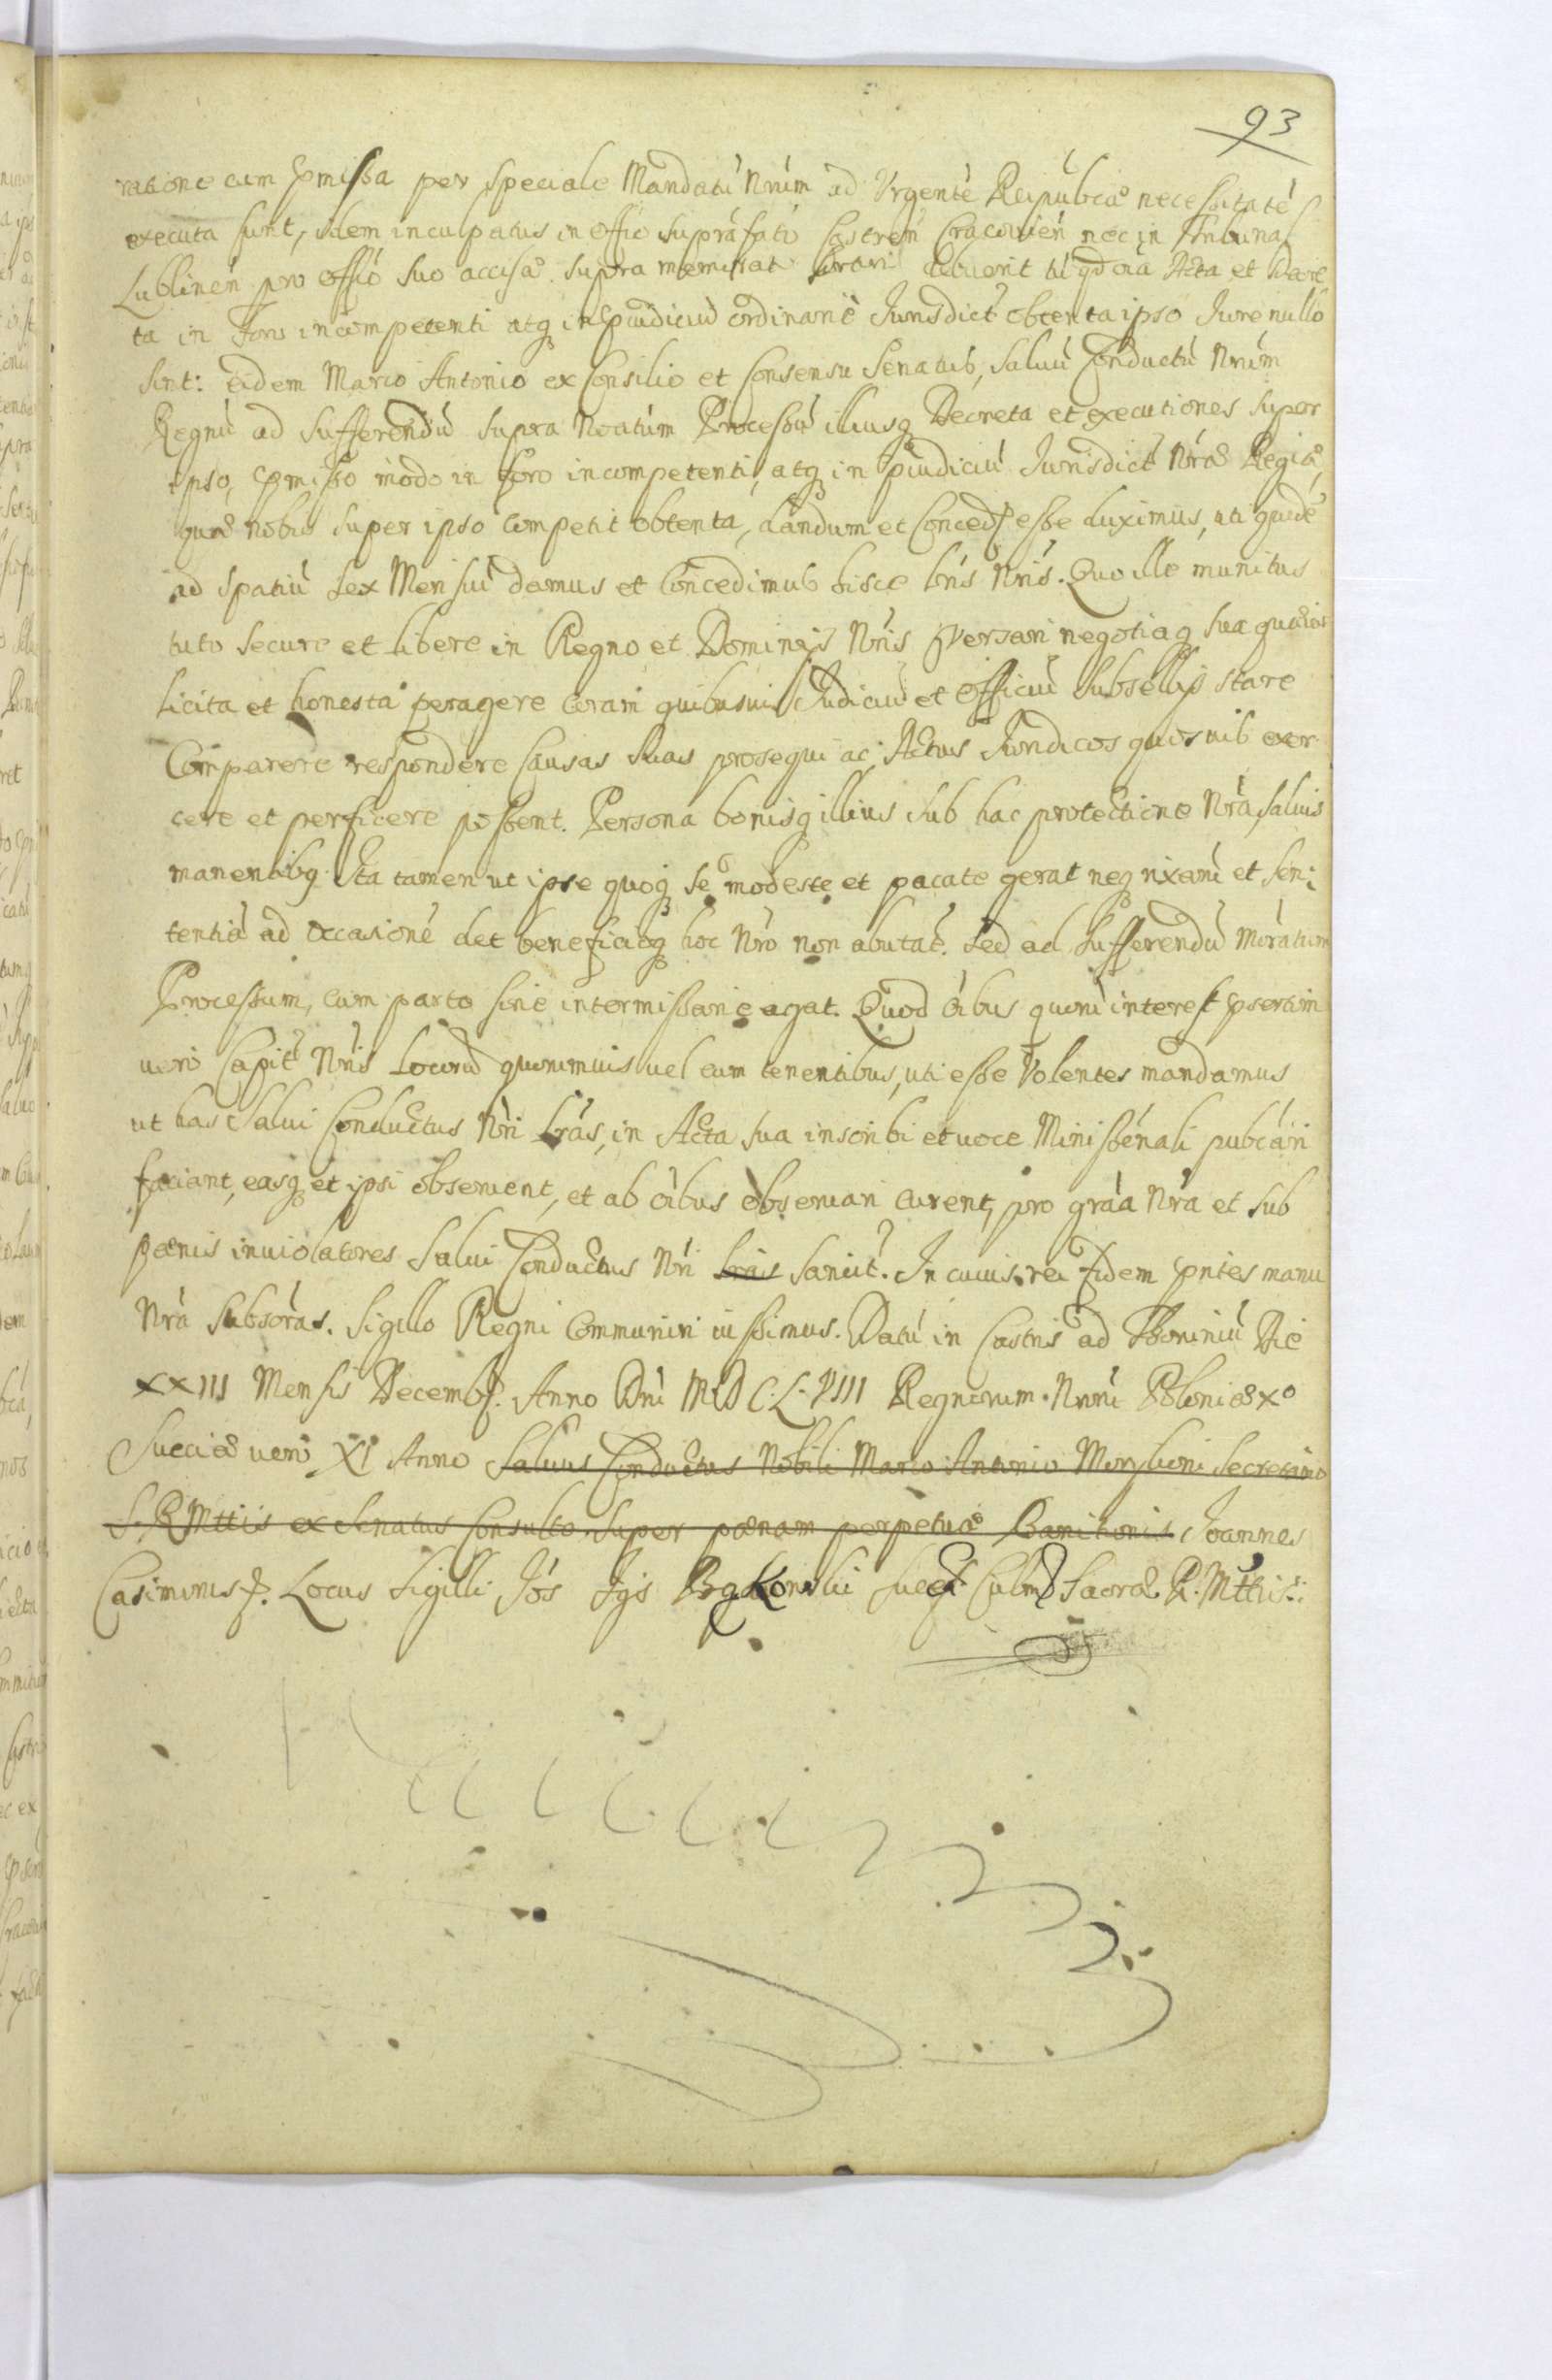 93
ratione cum pmissa per speciale Mandatu Nrum ad Urgente Reipubcae necessitate
executa sunt, idem inculpatus in offio suprafati Castren Cracovien nec in Tribunal
Lublinen pro offio suo accisae supra memorat debuerit tu qd oia Acta et Decre
ta in Foro incompetenti atq in pjudiciu ordinariae Jurisdict obtenta ipso Jure nullo
sint: eidem Marco Antonio ex Consilio et Consensu Senatus, Saluu Conductu Nrum
Regnu ad Sufferendu supra Notatum Processu illiusq Decreta et executiones super
ipso, pmisso modo in foro incompetenti, atq in pjudiciu Jurisdict Nrae Regiae,
quae nobis super ipso competit obtenta, dandum et Conced esse duximus, uti quide
ad spatiu sex Mensiu damus et Concedimus hisce lris Nris. Quo ille munitus
tuto secure et libere in Regno et Dominijs Nris versari negotiaq sua quaevis
licita et honesta peragere coram quibusuis Judiciu et officiu Subsellijs stare
Comparere respondere Causas suas prosequi ac Actus Juridicos quosuis exer
cere et perficere possent. Persona bonisq illius sub hac protectione Nra saluis
manentibq. Ita tamen ut ipse quoq se modeste et pacate gerat neq rixam et Sen:
tentia ad occasione det beneficioq hoc Nro non abutat. Sed ad Sufferendu
Processum, cum parte sine intermissione agat. Quod oibus quoru interest psertim
uero Capit Nris Locoru quorumuis uel eum tenentibus, uti esse Volentes mandamus
ut has Salui Conductus Nri lras, in Acta sua inscribi et uoce Ministeriali pubcari
faciant, easq et ipsi obseruent, et ab oibus obseruari curent, pro graa Nra et sub
paenis inuiolatores Salui Conductus Nri lras Sancit. In cuius rei fidem pntes manu
Nra Subscras. Sigillo Regni Communiri iussimus. Datu in Castris ad Thoruniu Die
XXIII Mensis Decemb. Anno Dni MDCLVIII Regnorum Nroru Poloniae Xo
Sueciae uero XI Anno Saluus Conductus Nobili Marco Antonio Secretario
S. R Mttis ex Senatus Consulto super paenam perpetuae Banitionis Joannes
Casimirus R. Locus Sigilli Culm Sacrae R. Mttis.